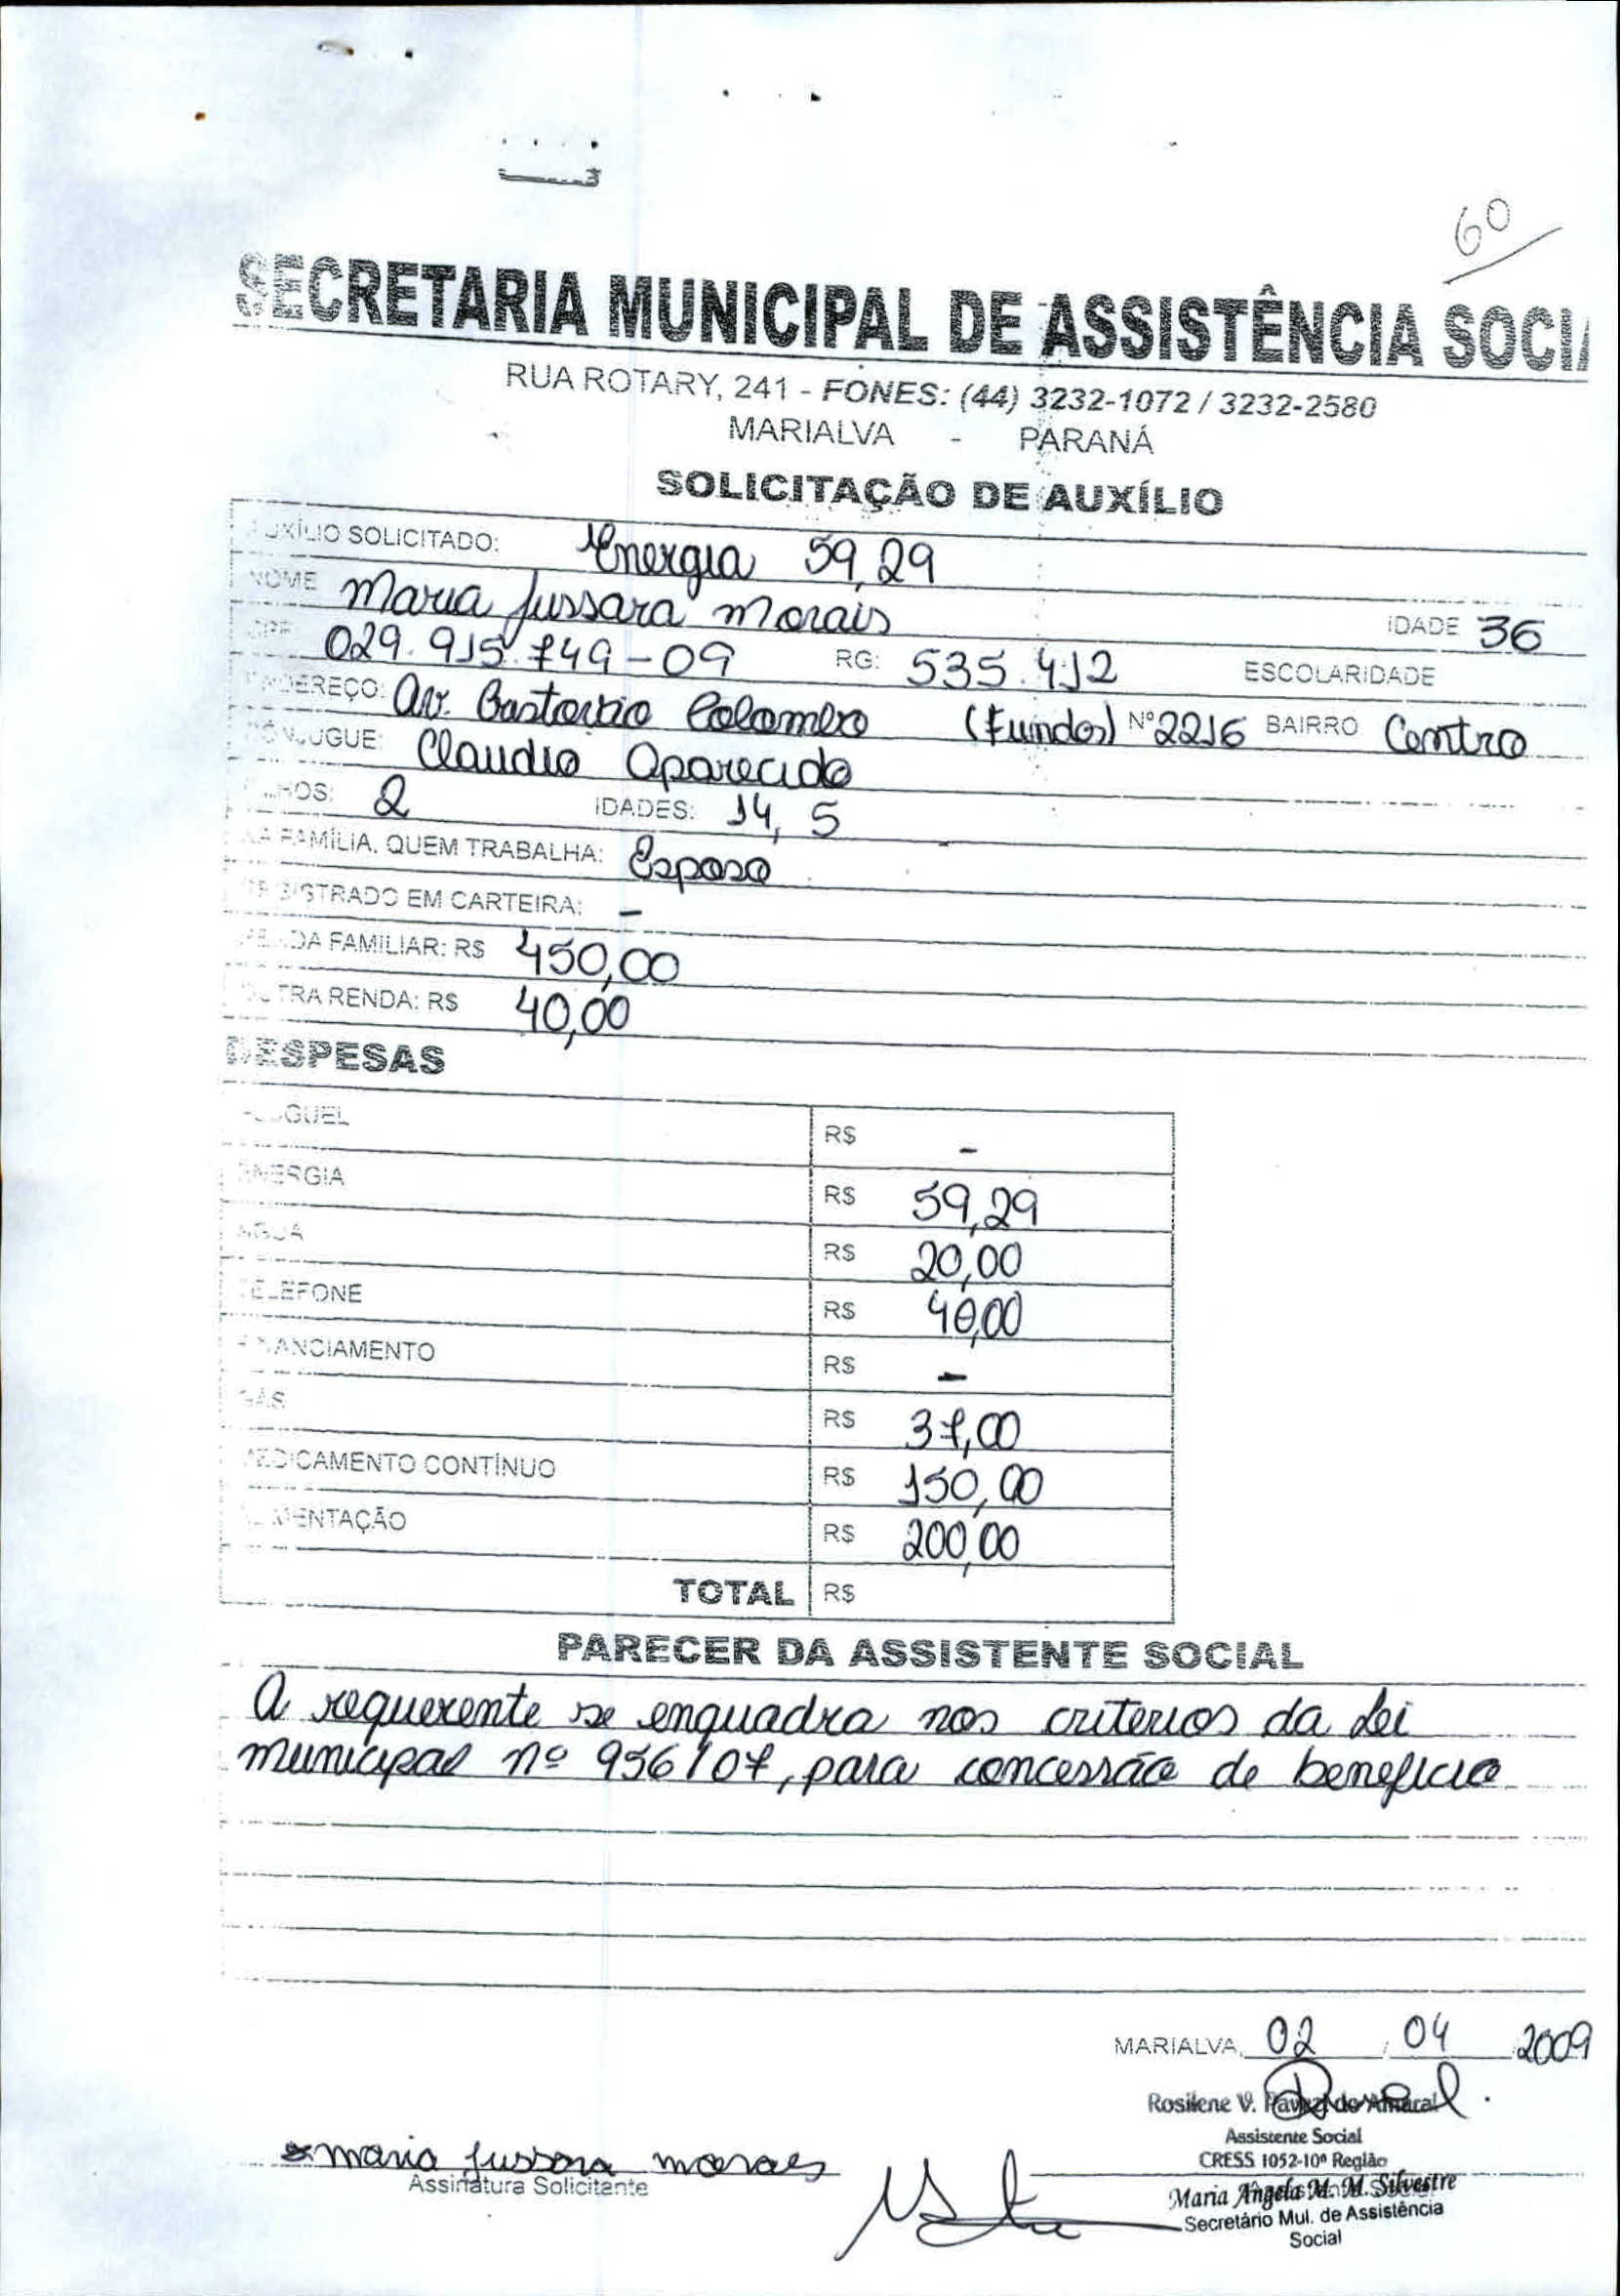 60
SECRETARIA MUNICIPAL DE ASSISTÊNCIA SOCIA
RUA ROTARY, 241 - FONES: (44) 3232-1072 / 3232-2580
MARIALVA - PARANÁ
SOLICITAÇÃO DE AUXÍLIO
AUXÍLIO SOLICITADO: Energia 59,29
NOME Maria Jussara Morais IDADE 36
CPF 029.915.749-09 RG: 535.412 ESCOLARIDADE
ENDEREÇO: Av. Colombo (Fundos) Nº 2216 BAIRRO Centro
CÔNJUGUE: Claudio Aparecido
FILHOS: 2 IDADES: 14, 5
NA FAMÍLIA, QUEM TRABALHA: Esposo
REGISTRADO EM CARTEIRA: -
RENDA FAMILIAR: R$ 450,00
OUTRA RENDA: R$ 40,00
DESPESAS
ALUGUEL R$ -
ENERGIA R$ 59,29
ÁGUA R$ 20,00
TELEFONE R$ 40,00
FINANCIAMENTO R$ -
GÁS R$ 37,00
MEDICAMENTO CONTÍNUO R$ 150,00
ALIMENTAÇÃO R$ 200,00
TOTAL R$
PARECER DA ASSISTENTE SOCIAL
A requerente se enquadra nos criterios da Lei
municipal nº 956/07, para concessão de beneficio
MARIALVA, 02 / 04 / 2009
Rosilene V. do Amaral
Assistente Social
CRESS 1052-10ª Região
maria jussara moraes
Assinatura Solicitante
Maria Ângela M. M. Silvestre
Secretário Mul. de Assistência
Social